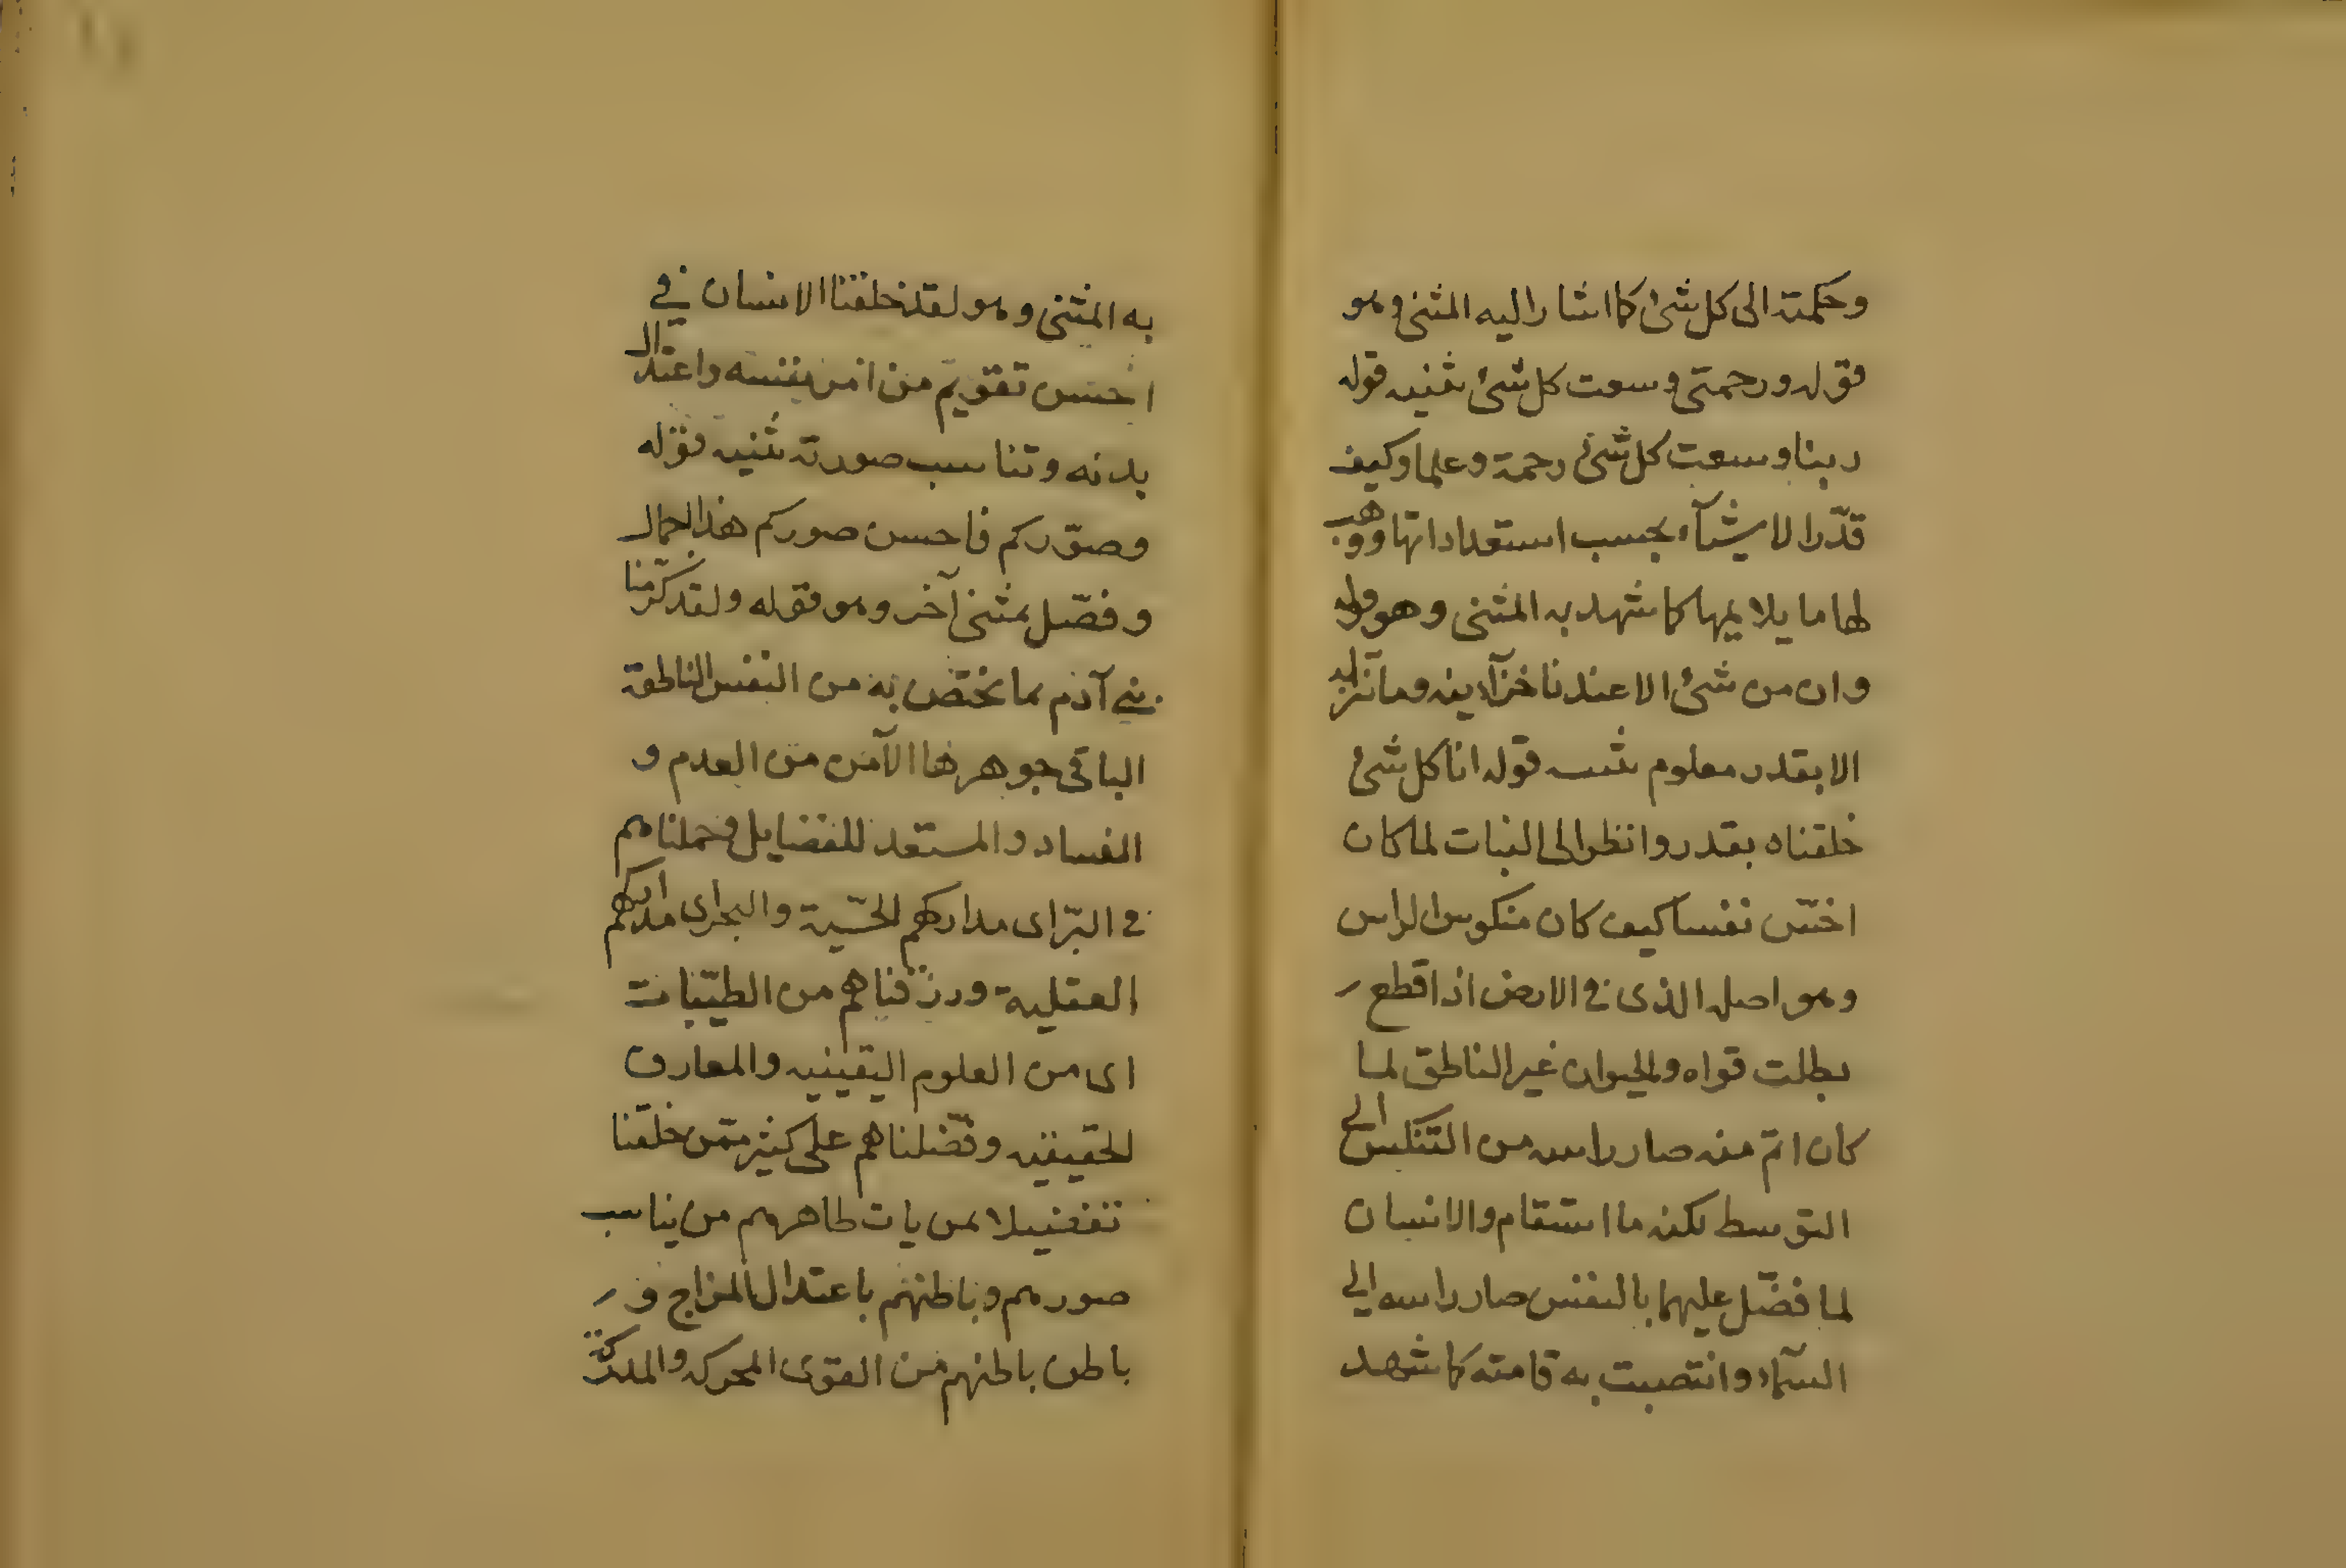 وحكمته الى كل شئ كما اشار اليه المثنى وهو
قوله ورحمتى وسعت كل شئ ثنيه قوله
ربنا وسعت كل شئ رحمة وعلما وكيف
قدّر الاشيآء بحسب استعداداتها ووهب
لها ما يلايمها كما شهد به المثنى وهو قوله
وان من شئ الا عندنا خزآينه وما ننزله
الا بقدر معلوم ثنيه قوله انا كل شئ
خلقناه بقدر وانظر الى النبات لما كان
اخسّ نفسا كيف كان منكوس الراس
وهو اصله الذى فى الارض اذا قطع
بطلت قواه والحيوان غير الناطق لما
كان اتم منه صار راسه من التنكيس الى
التوسط لكنه ما استقام والانسان
لما فضّل عليهما بالنفس صار راسه الى
السمآء وانتصبت به قامته كما شهد
به المثنى وهو لقد خلقنا الانسان في
احسن تقويم من امر نفسه واعتدال
بدنه وتناسب صورته ثنيه قوله
وصوّركم فاحسن صوركم هذا الجمال
وفصّل بمثنى آخر وهو قوله ولقد كرّمنا
بني آدم بما يختصّ به من النفس الناطقة
الباقى جوهرها الآمن من العدم و
الفساد والمستعد للفضايل وحملناهم
فى البرّ اى مداركهم الحسّية والبحر اى مداركهم
العقلية ورزقناهم من الطيّبات
اى من العلوم اليقينيه والمعارف
الحقيقيه وفضّلناهم على كثير ممّن خلقنا
تفضيلا بمن يات ظاهرهم من يناسب
صورهم وباطنهم باعتدال المزاج و
باطن باطنهم من القوى المحركه والمدركة